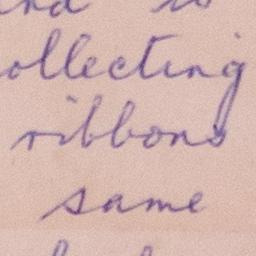 ollecting
ribbons
same